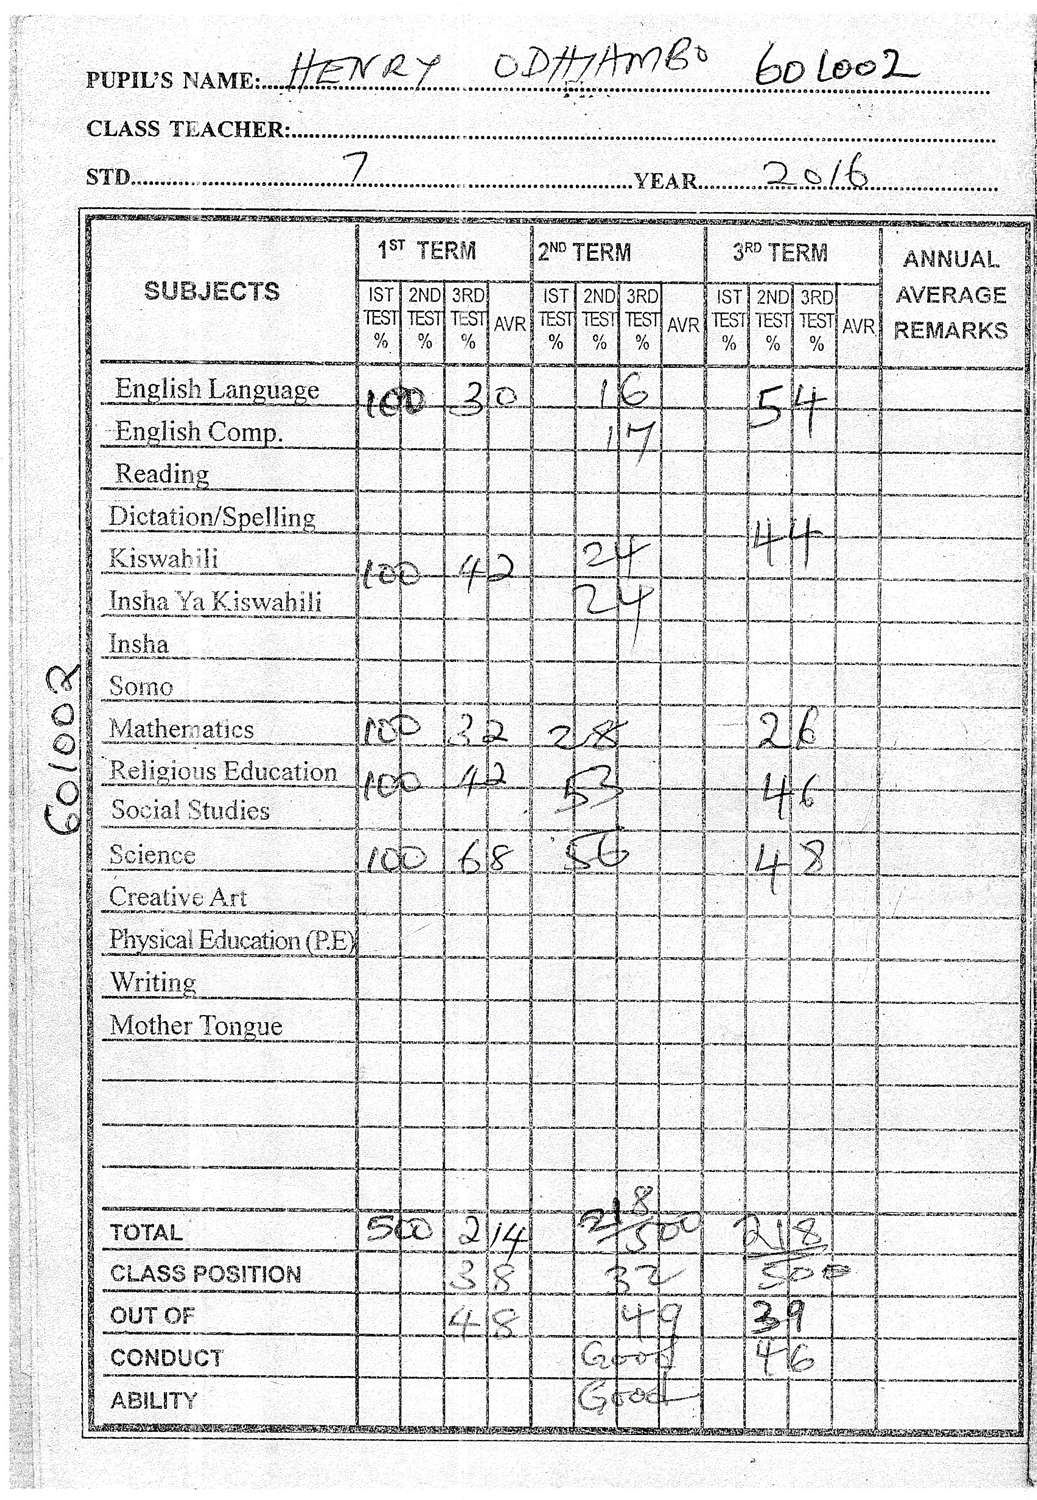 PUPIL'S NAME: HENRY ODHIAMBO 601002
CLASS TEACHER:
STD 7 YEAR 2016
SUBJECTS 1ST TERM 2ND TERM 3RD TERM ANNUAL AVERAGE REMARKS
IST TEST % 2ND TEST % 3RD TEST % AVR IST TEST % 2ND TEST % 3RD TEST % AVR IST TEST % 2ND TEST % 3RD TEST % AVR
English Language 100 30 16 54
English Comp. 17
Reading
Dictation/Spelling
Kiswahili 100 42 24 44
Insha Ya Kiswahili 24
Insha
Somo
Mathematics 100 32 28 26
Religious Education 100 42 53 46
Social Studies
Science 100 68 56 48
Creative Art
Physical Education (P.E)
Writing
Mother Tongue
TOTAL 500 214 218/500 218
CLASS POSITION 38 32 500
OUT OF 48 49 39
CONDUCT Good 46
ABILITY Good
601002